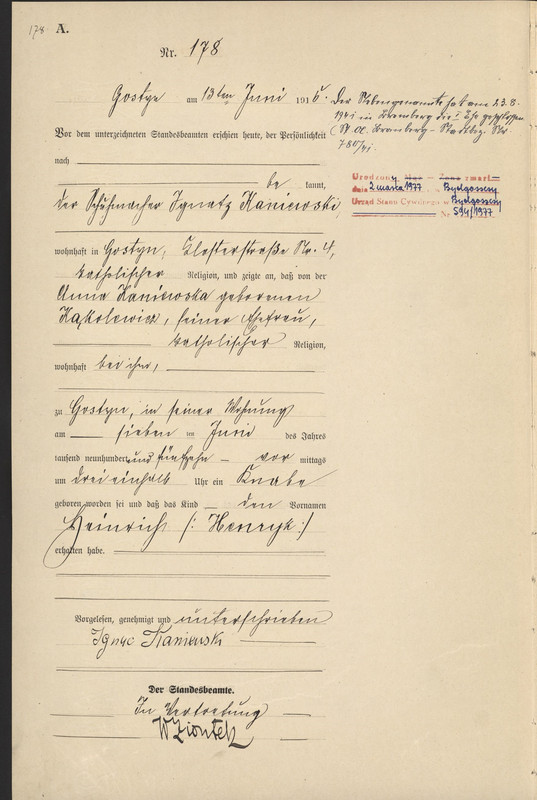 178 A.
Nr. 178
Gostyn am 13ten Juni 1915.
Vor dem unterzeichneten Standesbeamten erschien heute, der Persönlichkeit
nach
be kannt,
der Schuhmacher Ignatz Kaniewski,
wohnhaft in Gostyn, Closterstraße Nr. 4,
katholischer Religion, und zeigte an, daß von der
Anna Kaniewska geborenen
Kąkolewicz, seiner Ehefrau,
katholischer Religion,
wohnhaft bei ihm,
zu Gostyn, in seiner Wohnung
am sieben ten Juni des Jahres
tausend neunhundert und fünfzehn vor mittags
um drei einhalb Uhr ein Knabe
geboren worden sei und daß das Kind den Vornamen
Heinrich /: Henryk :/
erhalten habe.
Vorgelesen, genehmigt und unterschrieben
Ignac Kaniewski
Der Standesbeamte.
In Vertretung
W Ziontek
Der Nebengenannte hat am 23.8.
1941 in Bromberg die I. Ehe geschlossen
(St. A. Bromberg - Stadtbez. Nr.
780/41.
Urodzony zmarł
dnia 2 marca 1977 Bydgoszczy
Urząd Stanu Cywilnego w Bydgoszczy
Nr 594/1977